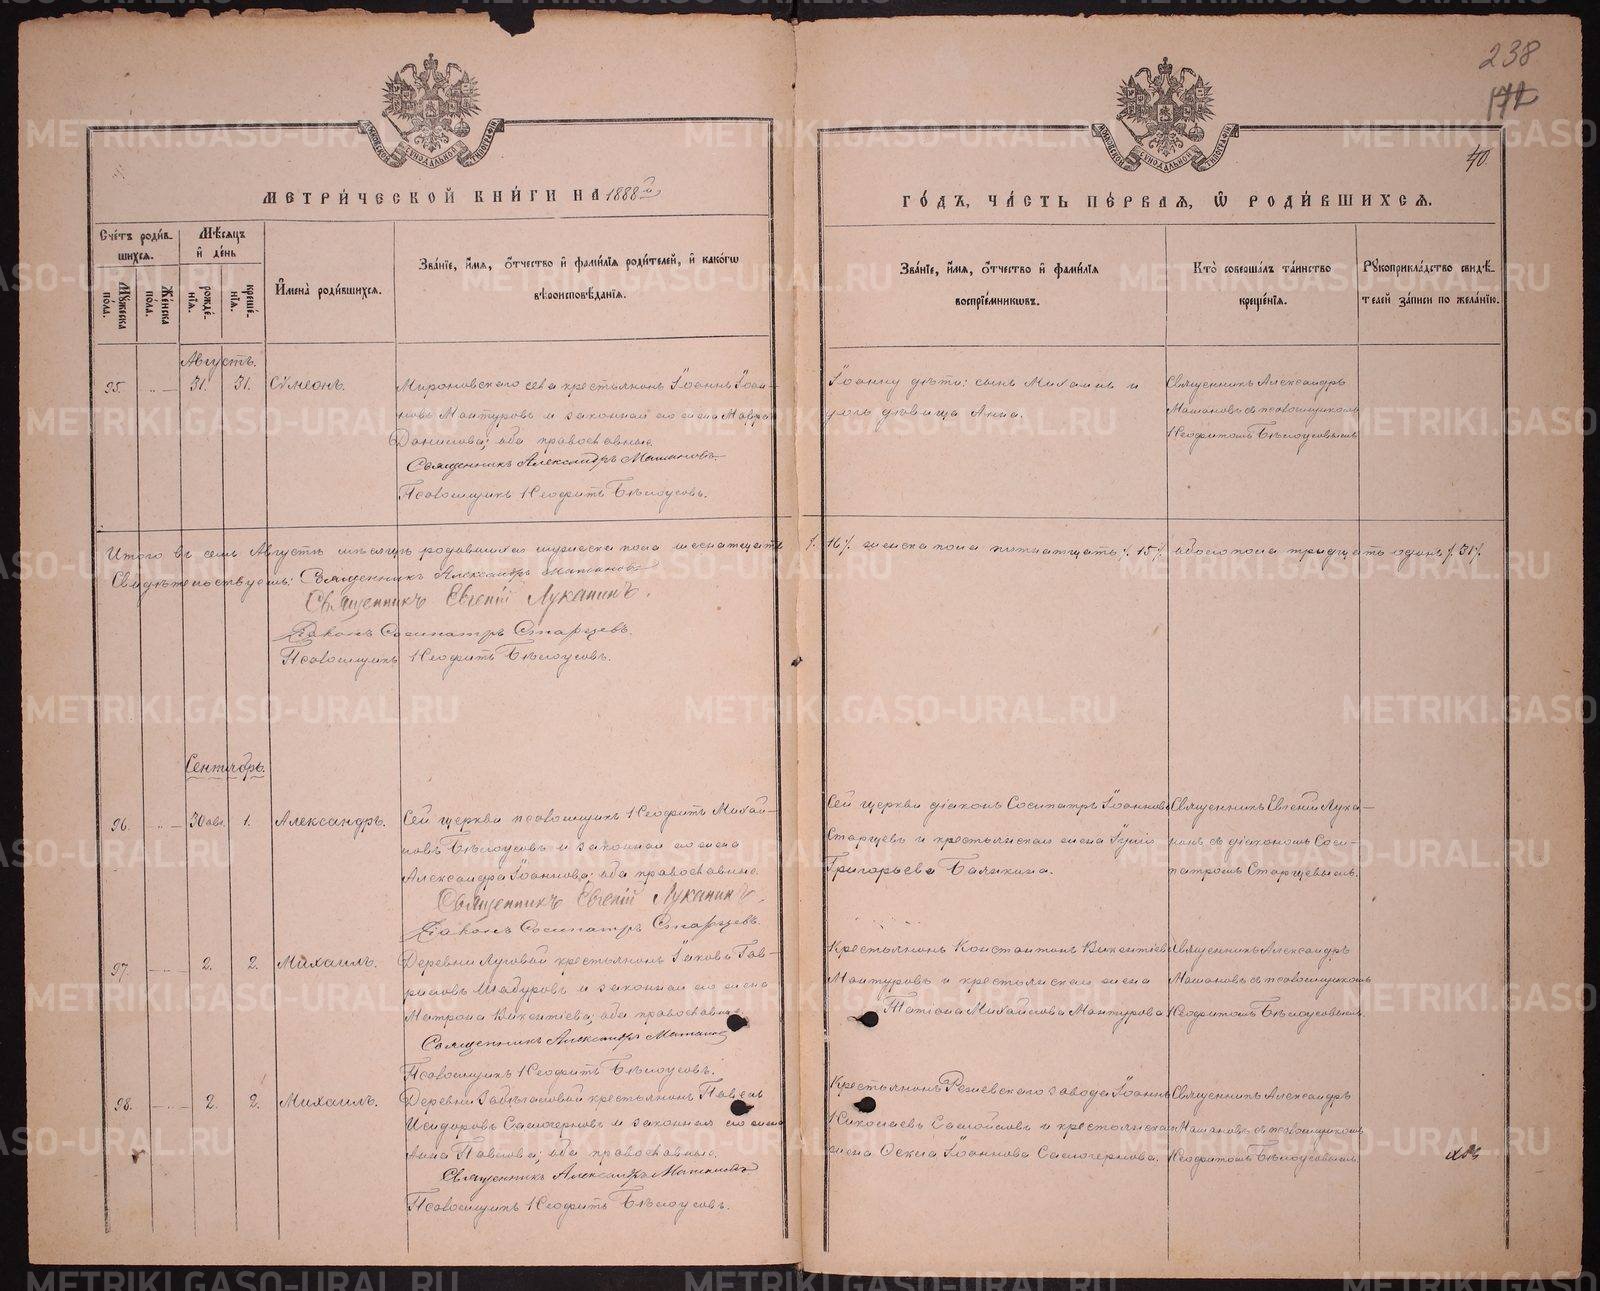 238
40.
МЕТРИ́ЧЕСКОЙ КНИ́ГИ НА 1888й
ГО́ДЪ, ЧА́СТЬ ПЕ́РВАЯ, Ѡ РОДИ́ВШИХСЯ.
Сче́тъ роди́в-
шихся.
Мѣ́сяцъ
и҆ де́нь
И҆мена̀ роди́вшихся.
Зва́нїе, и҆́мя, ѻ҆́тчество и҆ фами́лїѧ роди́телей, и҆ како́гѡ
вѣроисповѣ́данїѧ.
Му́жеска по́ла.
Же́нска по́ла.
рожде́-нїѧ.
креще́-нїѧ.
Зва́нїе, и҆́мя, ѻ҆́тчество и҆ фами́лїѧ
воспрїе́мникѡвъ.
Кто̀ соверша́лъ та́инство
креще́нїѧ.
Рꙋкоприкла́дство свидѣ́-
телей за́писи по жела́нїю.
Августъ.
95. 31. 31. Сѵмеонъ.
Мироновскаго села крестьянинъ Іоаннъ Іоан-
новъ Мантуровъ и законная его жена Мавра
Данилова; оба православные.
Священникъ Александръ Машановъ.
Псаломщикъ Неофитъ Бѣлоусовъ.
дѣти: сынъ Михаилъ и
дочь дѣвица Анна.
Священникъ Александръ
Машановъ съ псаломщикомъ
Неофитомъ Бѣлоусовымъ.
Итого въ семъ Августѣ мѣсяцѣ родившихся мужеска пола шестнатцать /16/. женска пола пятнатцать /15/. обоего пола тридцать одинъ /31/.
Свидѣтельствуемъ: Священникъ Александръ Машановъ
Священникъ Евгеній Луканинъ.
Діаконъ Сосипатръ Старцевъ.
Псаломщикъ Неофитъ Бѣлоусовъ.
Сентябрь.
96. 30 авг. 1. Александръ.
Сей церкви псаломщикъ Неофитъ Михай-
ловъ Бѣлоусовъ и законная его жена
Александра Іоаннова; оба православные.
Священникъ Евгеній Луканинъ.
Діаконъ Сосипатръ Старцевъ.
Сей церкви діаконъ Сосипатръ Іоанновъ
Старцевъ и крестьянская жена
Григорьева
Священникъ Евгеній Лука-
нинъ съ діакономъ Соси-
патромъ Старцевымъ.
97. 2. 2. Михаилъ.
Деревни Луговой крестьянинъ Іаковъ Гав-
риловъ Шабуровъ и законная его жена
Матрона Викентіева; оба православные.
Священникъ Александръ Машановъ
Псаломщикъ Неофитъ Бѣлоусовъ.
Крестьянинъ Константинъ Викентіевъ
Мантуровъ и крестьянская жена
Татіана Михайлова Мантурова
Священникъ Александръ
Машановъ съ псаломщикомъ
Неофитомъ Бѣлоусовымъ.
98. 2. 2. Михаилъ.
Деревни крестьянинъ Павелъ
Исидоровъ Самочерновъ и законная его жена
Анна Павлова; оба православные.
Священникъ Александръ Машановъ
Псаломщикъ Неофитъ Бѣлоусовъ.
Крестьянинъ Режевскаго завода Іоаннъ
Николаевъ и крестьянская
жена Іоаннова Самочернова.
Священникъ Александръ
Машановъ съ псаломщикомъ
Неофитомъ Бѣлоусовымъ.
METRIKI.GASO-URAL.RU